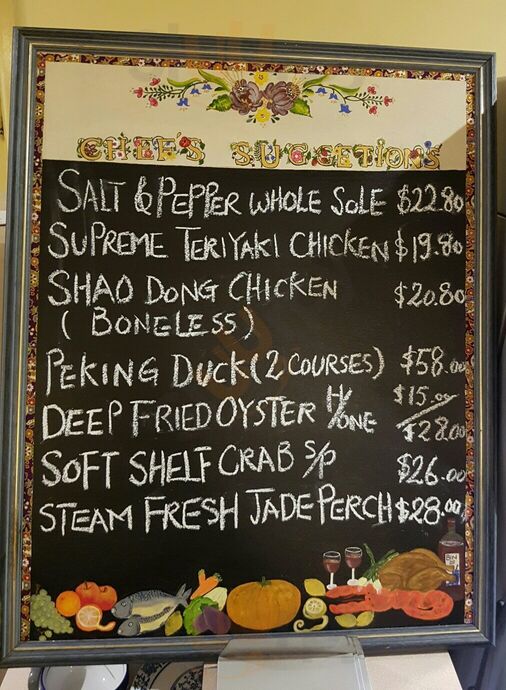 CHEF'S SUGGETIONS
SALT & PEPPER WHOLE SOLE $22.80
SUPREME TERIYAKI CHICKEN $19.80
SHAO DONG CHICKEN $20.80
( BONELESS )
PEKING DUCK (2 COURSES) $58.00
DEEP FRIED OYSTER H/ONE $15.00/$28.00
SOFT SHELF CRAB S/P $26.00
STEAM FRESH JADE PERCH $28.00